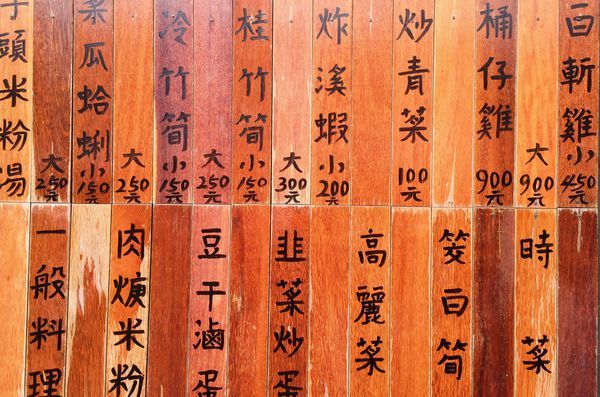 白斬雞小450元
大900元
桶仔雞900元
炒青菜100元
炸溪蝦小200元
大300元
桂竹筍小150元
大250元
冷竹筍小150元
大250元
菜瓜蛤蜊小150元
大250元
頭米粉湯
時菜
筊白筍
高麗菜
韭菜炒蛋
豆干滷蛋
肉焿米粉
一般料理